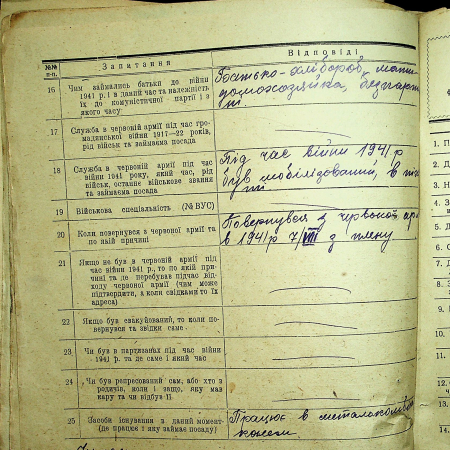 №№ п-п.
Запитання
Відповіді
16
Чим займались батьки до війни
1941 р. і в даний час та належність
їх до комуністичної партії і з
якого часу
Батько-хлібороб, мати
домохозяйка, безпарт
17
Служба в червоній армії під час гро-
мадянської війни 1917—22 років,
рід військ та займаєма посада
18
Служба в червоній армії під час
війни 1941 року, який час, рід
військ, останнє військове звання
та займаєма посада
Під час війни 1941 р
був мобілізований, в
19
Військова спеціальність (№ ВУС)
20
Коли повернувся з червоної армії та
по якій причині
Повернувся з червоної ар
в 1941 р 7/VIII з плену
21
Якщо не був в червоній армії під
час війни 1941 р., то по якій при-
чині та де перебував підчас від-
ходу червоної армії (чим може
підтвердити, а коли свідками то їх
адреса)
22
Якщо був евакуйований, то коли по-
вернувся та звідки саме
23
Чи був в партизанах під час війни
1941 року та де саме і який час
24
Чи був репресований сам, або хто з
родичів, коли і защо, яку мав
кару та чи відбув її
25
Засоби існування з даний момент
(де працює і яку займає посаду)
Працює в
1. П
2.
3. Н
4.
5.
6. О
7.
8.
9. С
10.
11.
12.
13.
14.